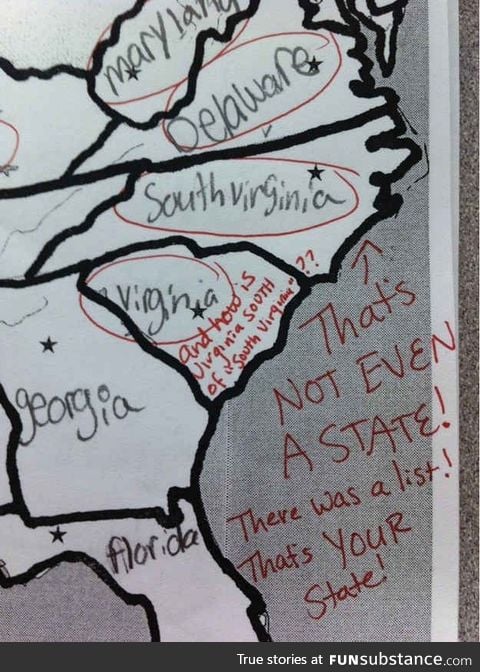 maryland
Delaware
South virginia
virginia
and how is
Virginia SOUTH
of "South Virginia"??
That's
NOT EVEN
A STATE!
There was a list!
Thats YOUR
State!
georgia
florida
True stories at FUNsubstance.com